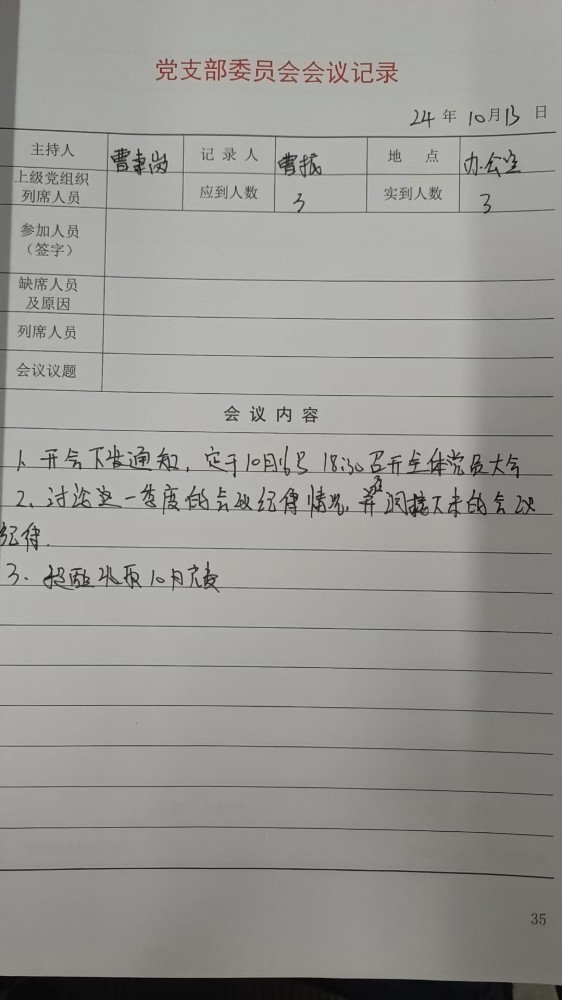 党支部委员会会议记录
24 年 10 月 13 日
主持人 曹 岗 记录人 曹振 地点 办公室
上级党组织
列席人员 应到人数 3 实到人数 3
参加人员
(签字)
缺席人员
及原因
列席人员
会议议题
会议内容
1、开会下发通知,定于10月16号 18:30召开全体党员大会
2、讨论这一季度的会议纪律情况,并 调接下来的会议
纪律.
3、提醒 10月
35